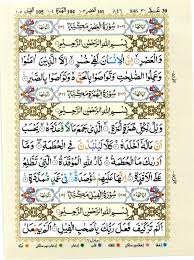 سُوْرَةُ الْعَصْرِ مَكِّيَّةٌ
بِسْمِ اللهِ الرَّحْمٰنِ الرَّحِيْمِ
وَالْعَصْرِ اِنَّ الْاِنْسَانَ لَفِيْ خُسْرٍ اِلَّا الَّذِيْنَ اٰمَنُوْا
وَعَمِلُوا الصّٰلِحٰتِ وَتَوَاصَوْا بِالْحَقِّ وَتَوَاصَوْا بِالصَّبْرِ
سُوْرَةُ الْهُمَزَةِ مَكِّيَّةٌ
بِسْمِ اللهِ الرَّحْمٰنِ الرَّحِيْمِ
وَيْلٌ لِّكُلِّ هُمَزَةٍ لُّمَزَةٍ الَّذِيْ جَمَعَ مَالًا وَّعَدَّدَهٗ يَحْسَبُ
اَنَّ مَالَهٗٓ اَخْلَدَهٗ كَلَّا لَيُنْۢبَذَنَّ فِي الْحُطَمَةِ
وَمَآ اَدْرٰىكَ مَا الْحُطَمَةُ نَارُ اللهِ الْمُوْقَدَةُ الَّتِيْ تَطَّلِعُ
عَلَى الْاَفْـِٕدَةِ اِنَّهَا عَلَيْهِمْ مُّؤْصَدَةٌ فِيْ عَمَدٍ مُّمَدَّدَةٍ
سُوْرَةُ الْفِيْلِ مَكِّيَّةٌ
بِسْمِ اللهِ الرَّحْمٰنِ الرَّحِيْمِ
اَلَمْ تَرَ كَيْفَ فَعَلَ رَبُّكَ بِاَصْحٰبِ الْفِيْلِ اَلَمْ يَجْعَلْ